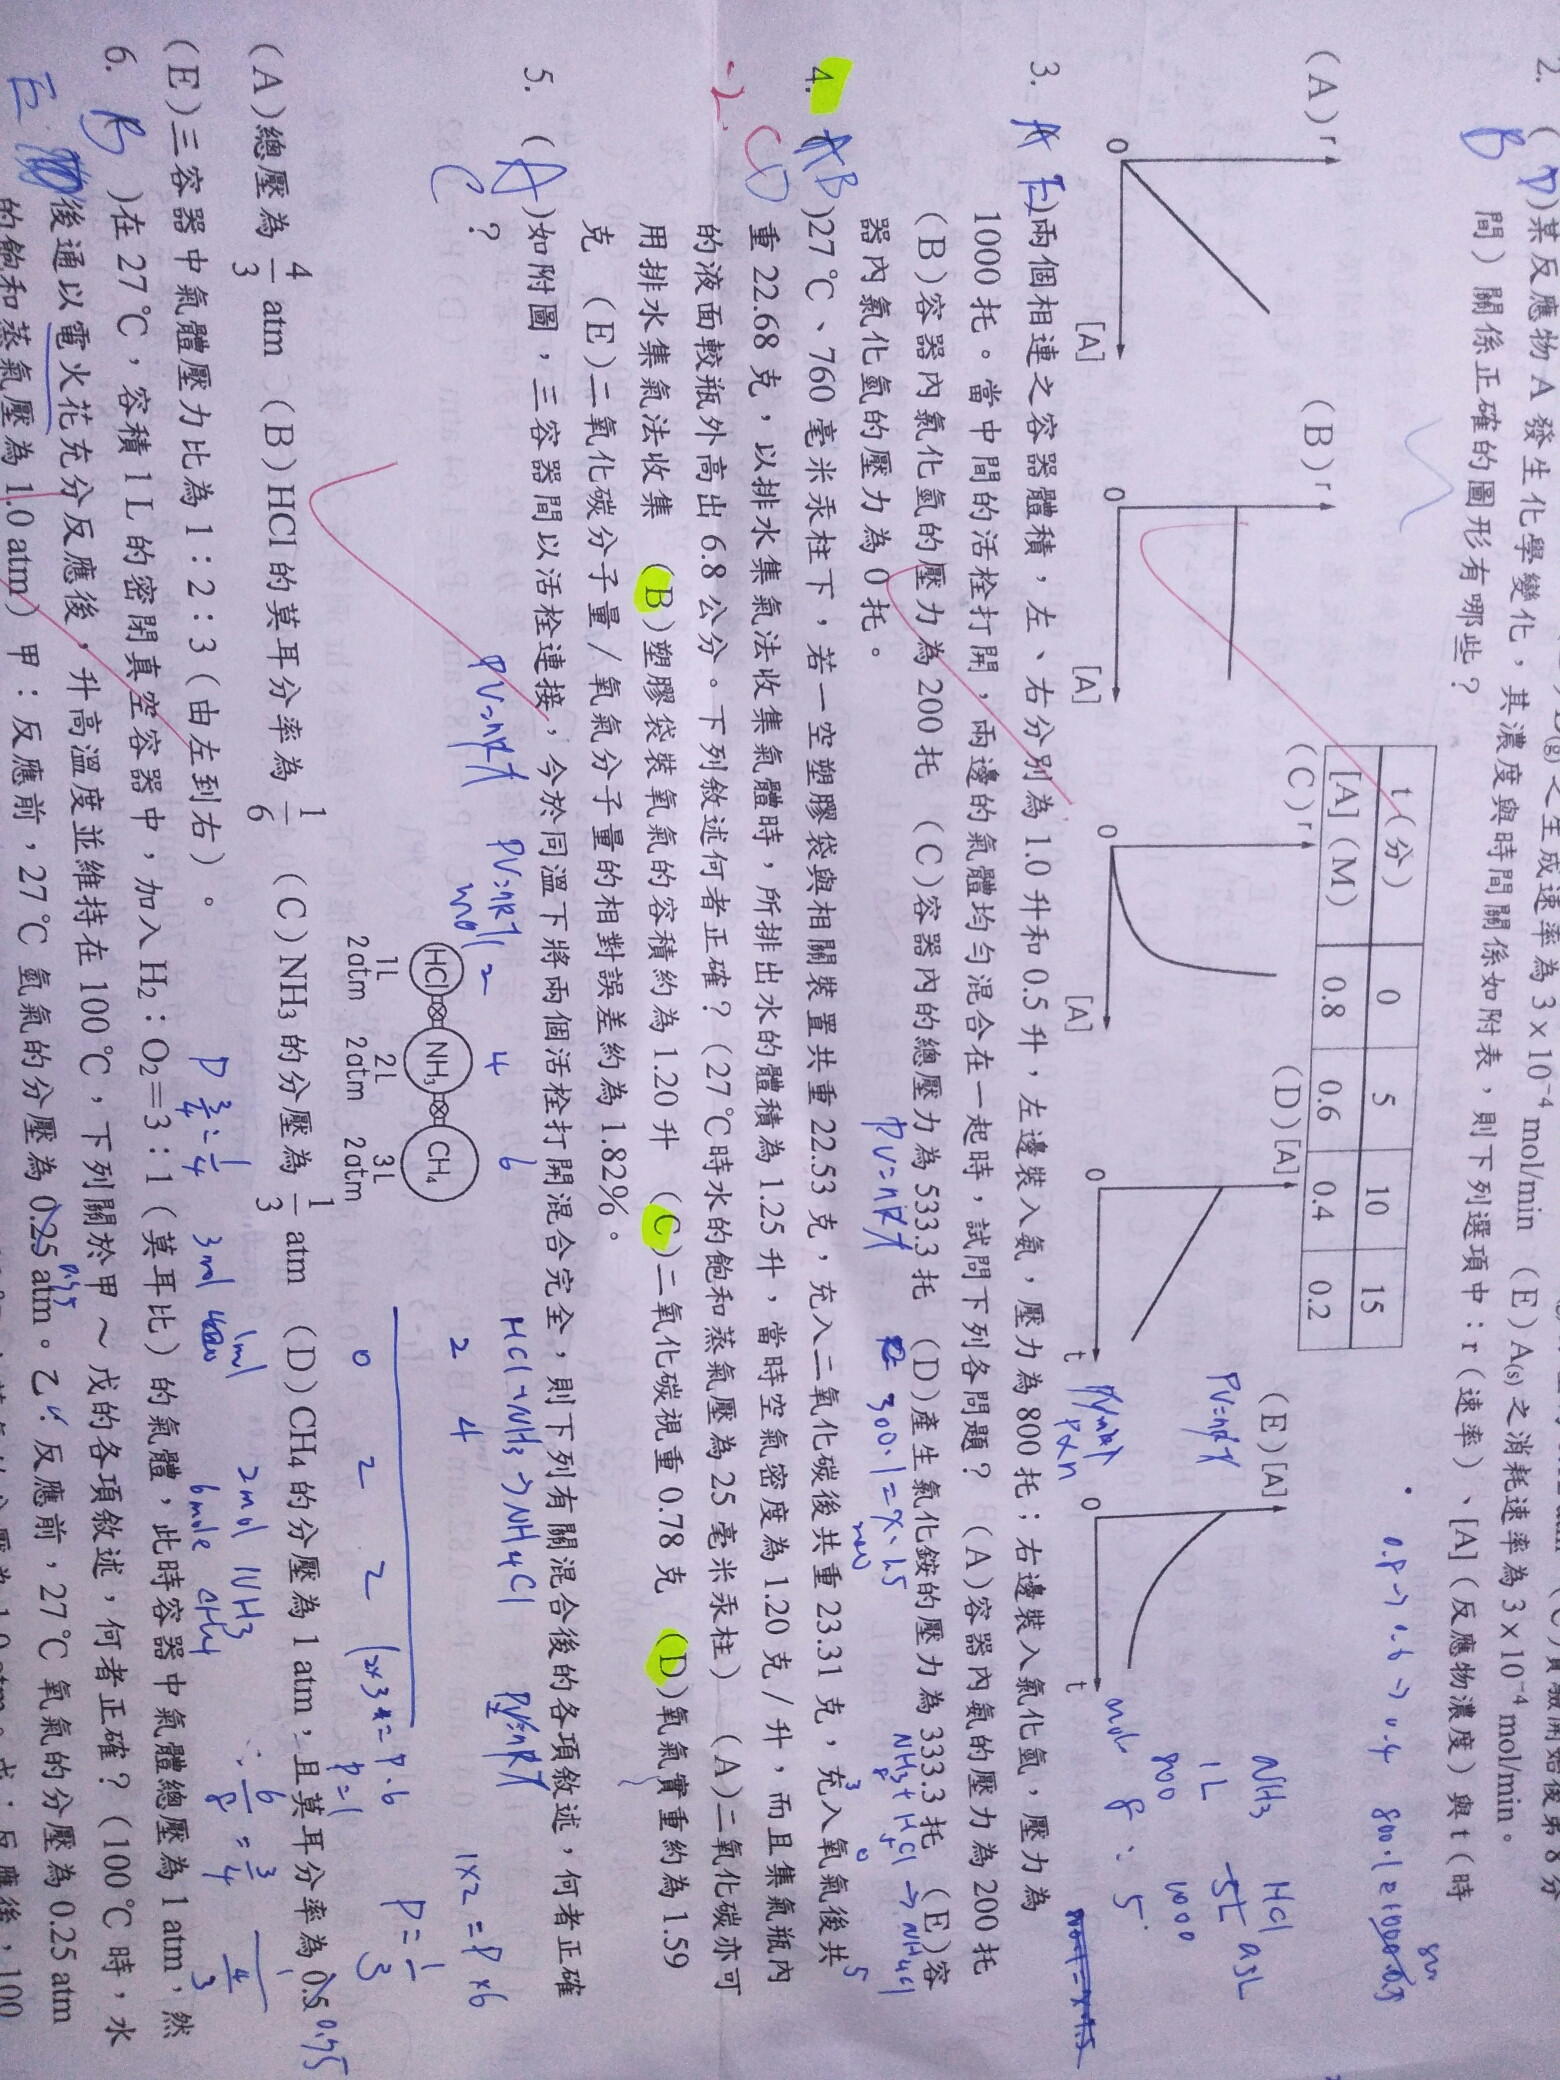 之生成速率為 3×10⁻⁴ mol/min (E)A(s) 之消耗速率為 3×10⁻⁴ mol/min。
2. ( )某反應物 A 發生化學變化，其濃度與時間關係如附表，則下列選項中：r（速率）、[A]（反應物濃度）與 t（時
B
間）關係正確的圖形有哪些？
t（分） 0 5 10 15
[A]（M） 0.8 0.6 0.4 0.2
(A) r 0 [A]
(B) r 0 [A]
(C) r 0 [A]
(D) [A] 0 t
(E) [A] 0 t
3. A E)兩個相連之容器體積，左、右分別為 1.0 升和 0.5 升，左邊裝入氨，壓力為 800 托；右邊裝入氯化氫，壓力為
1000 托。當中間的活栓打開，兩邊的氣體均勻混合在一起時，試問下列各問題？ (A)容器內氨的壓力為 200 托
(B)容器內氯化氫的壓力為 200 托 (C)容器內的總壓力為 533.3 托 (D)產生氯化銨的壓力為 333.3 托 (E)容
器內氯化氫的壓力為 0 托。
PV=nRT
NH3 HCl
1L .5L 0.5L
800 1000
mol 8 : 5
NH3 + HCl → NH4Cl
8 5
3 0 5
4. AB )27℃、760 毫米汞柱下，若一空塑膠袋與相關裝置共重 22.53 克，充入二氧化碳後共重 23.31 克，充入氧氣後共
-2 CD
重 22.68 克，以排水集氣法收集氣體時，所排出水的體積為 1.25 升，當時空氣密度為 1.20 克／升，而且集氣瓶內
的液面較瓶外高出 6.8 公分。下列敘述何者正確？（27℃時水的飽和蒸氣壓為 25 毫米汞柱） (A)二氧化碳亦可
用排水集氣法收集 (B)塑膠袋裝氧氣的容積約為 1.20 升 (C)二氧化碳視重 0.78 克 (D)氧氣實重約為 1.59
克 (E)二氧化碳分子量／氧氣分子量的相對誤差約為 1.82%。
5. (A)如附圖，三容器間以活栓連接，今於同溫下將兩個活栓打開混合完全，則下列有關混合後的各項敘述，何者正確
C
？
PV=nRT
PV=nRT
mol 2 4 6
HCl + NH3 → NH4Cl
2 4
0 2 2
PV=nRT
1×2=P×6
P=1/3
2×3=P·6
P=1
HCl NH₃ CH₄
1L 2L 3L
2atm 2atm 2atm
(A)總壓為 4/3 atm (B)HCl 的莫耳分率為 1/6 (C)NH₃ 的分壓為 1/3 atm (D)CH₄ 的分壓為 1 atm，且莫耳分率為 0.5 0.75
(E)三容器中氣體壓力比為 1：2：3（由左到右）。
2mol NH3
6mole CH4
6/8 = 3/4
3mol 1mol
6. B )在 27℃，容積 1 L 的密閉真空容器中，加入 H₂：O₂＝3：1（莫耳比）的氣體，此時容器中氣體總壓為 1 atm，然
E
後通以電火花充分反應後，升高溫度並維持在 100℃，下列關於甲～戊的各項敘述，何者正確？（100℃時，水
的飽和蒸氣壓為 1.0 atm） 甲：反應前，27℃氫氣的分壓為 0.25 atm。乙：反應前，27℃氧氣的分壓為 0.25 atm